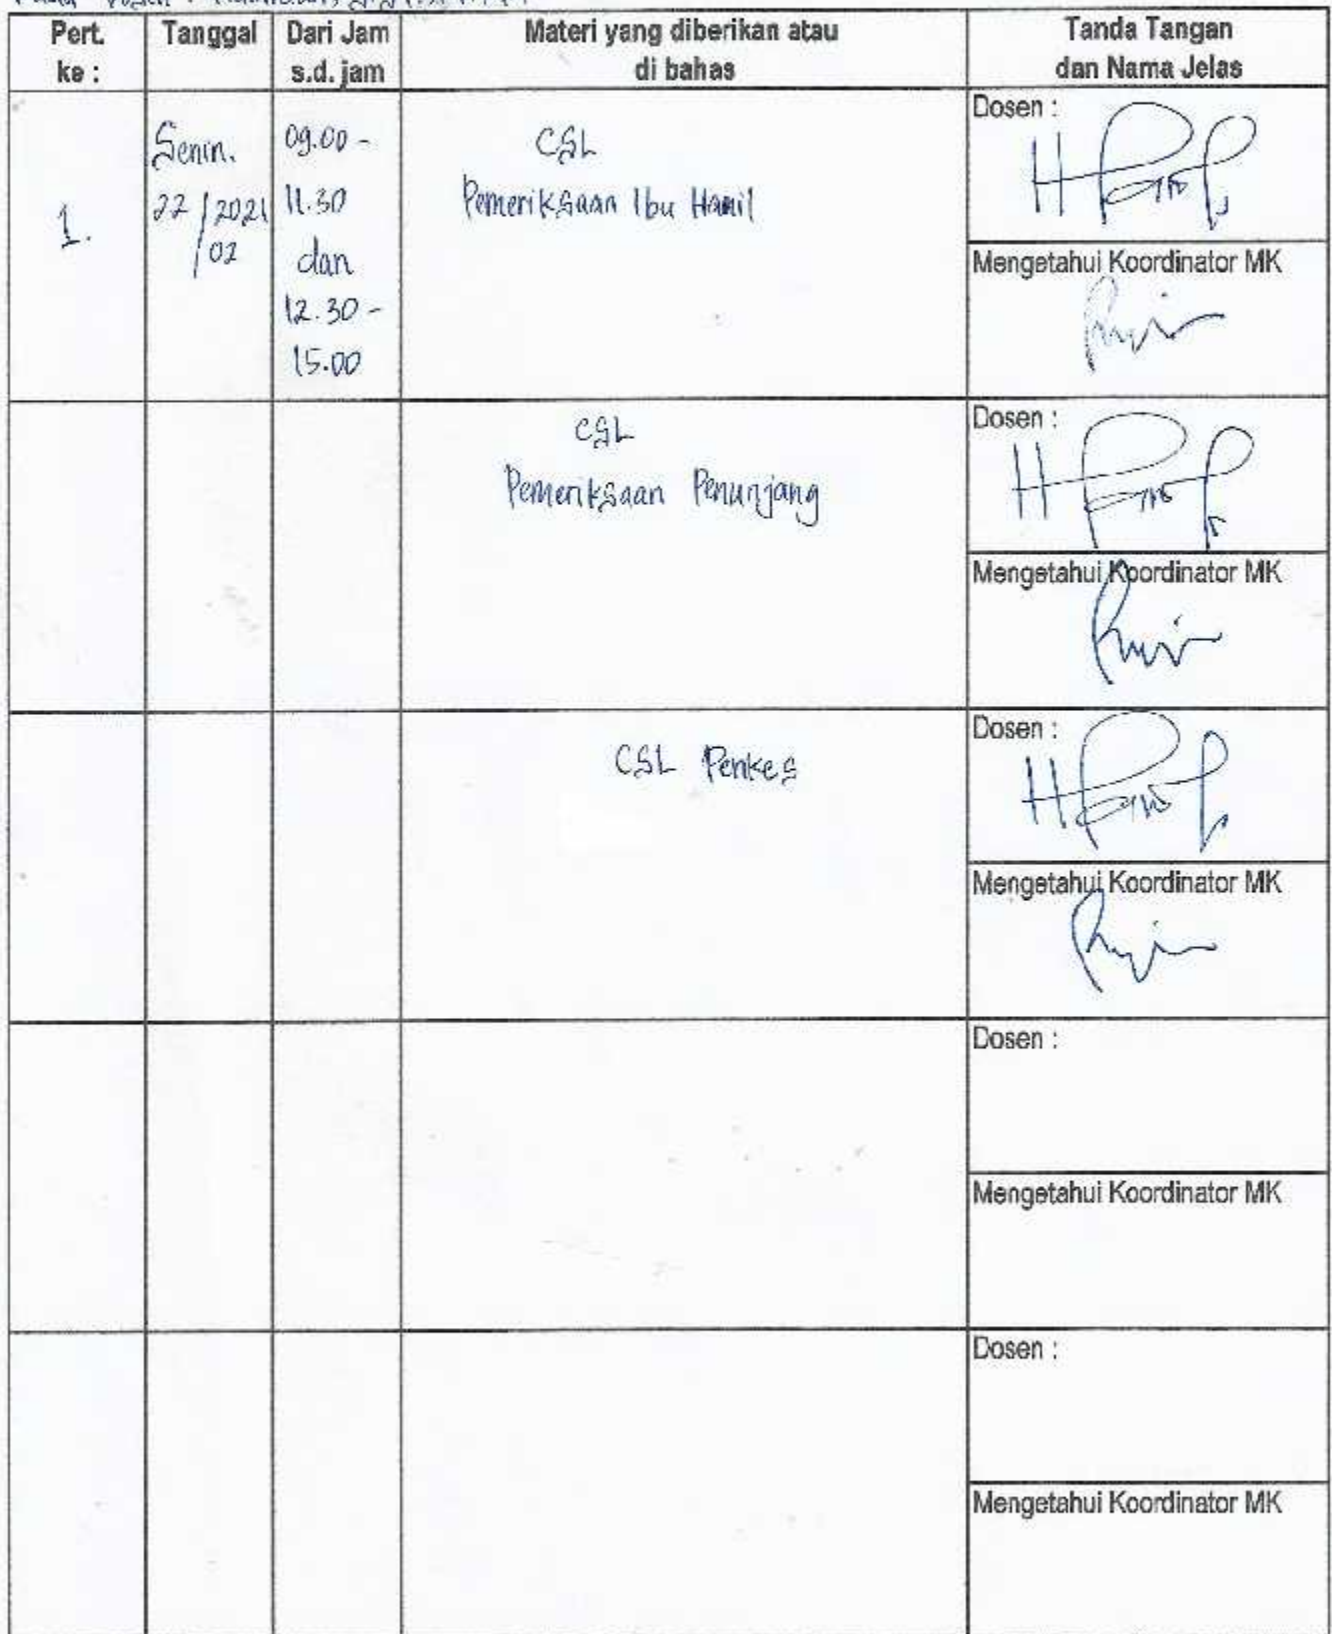 Pert. ke :
Tanggal
Dari Jam s.d. jam
Materi yang diberikan atau di bahas
Tanda Tangan dan Nama Jelas
1.
Senin.
22/2021
02
09.00 -
11.30
dan
12.30 -
15.00
CSL
Pemeriksaan Ibu Hamil
Dosen :
Mengetahui Koordinator MK
CSL
Pemeriksaan Penunjang
Dosen :
Mengetahui Koordinator MK
CSL Penkes
Dosen :
Mengetahui Koordinator MK
Dosen :
Mengetahui Koordinator MK
Dosen :
Mengetahui Koordinator MK